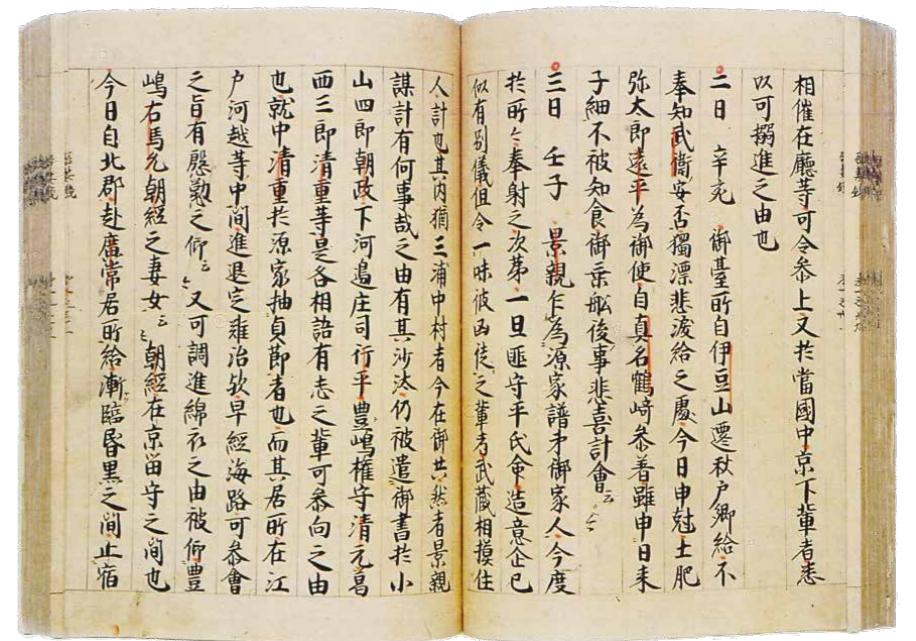 相催在廳等可令参上又於當國中京下輩者悉
以可搦進之由也
二日 辛亥 御臺所自伊豆山遷秋戸郷給不
奉知武衛安否獨漂悲涙給之處今日申尅土肥
弥太郎遠平為御使自真名鶴﨑参着雖申日来
子細不被知食御乗舩後事悲喜計會云々
三日 壬子 景親乍為源家譜代御家人今度
於所々奉射之次第一旦匪守平氏命造意企已
似有別儀但令一味彼凶徒之輩者武蔵相摸住
人計也其内猶三浦中村者今在御共然者景親
謀計有何事哉之由有其沙汰仍被遣御書於小
山四郎朝政下河邉庄司行平豊嶋権守清元葛
西三郎清重等是各相語有志之輩可参向之由
也就中清重於源家抽貞節者也而其居所在江
戸河越等中間進退定難治歟早經海路可参會
之旨有慇懃之仰云々又可調進綿衣之由被仰豊
嶋右馬允朝經之妻女云々朝經在京留守之間也
今日自北郡赴廣常居所給漸臨昏黒之間止宿